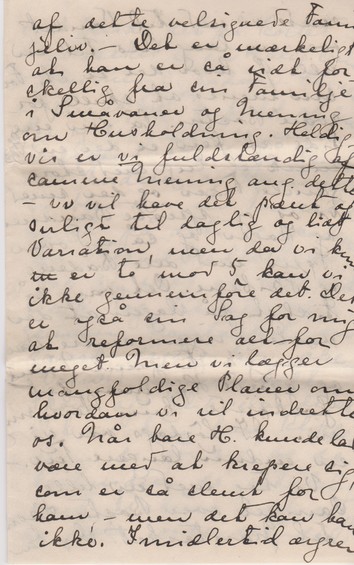 af dette velsignede Fami
jeliv. – Det er mærkeligt
at han er så vidt for
skellig fra sin Familje
i Småvaner og Mening
om Husholdning. Heldig
vis er vi fuldstændig af
samme Mening ang. dette
– vi vil have det pænt og
ordligt til daglig og lidt
Variation, men da vi kun
er to, mod 5 kan vi
ikke gennemføre det. Det
er også sin Sag for mig
at reformere alt for
meget. Men vi lægger
mangfoldige Planer om
hvordan vi vil indrette
os. Når bare H. kunde lade
være med at krepere sig,
som er så slemt for
ham – men det kan han
ikke. Imidlertid ærgrer